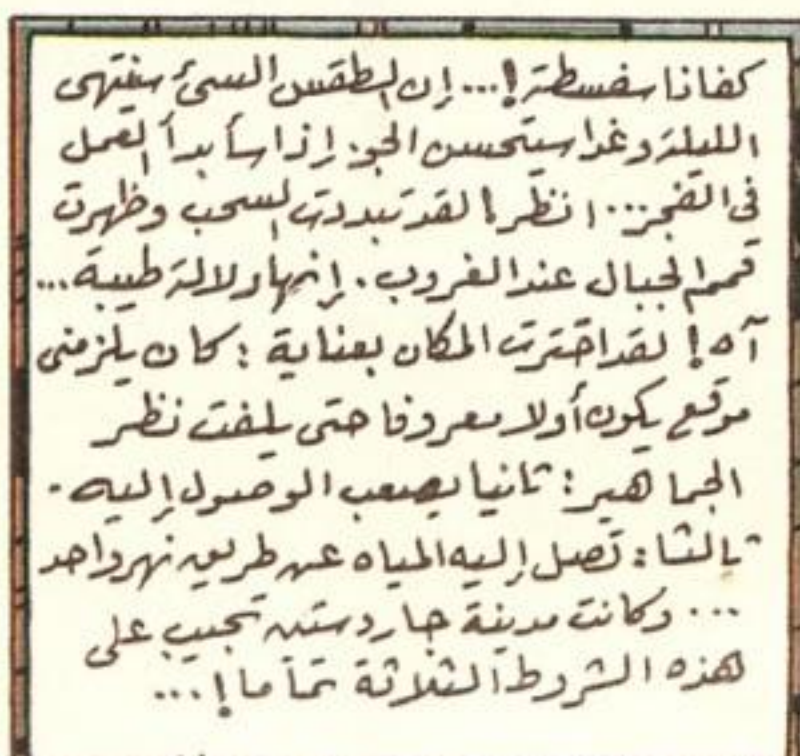 كفانا سفسطة!... إن الطقس السئ سينتهى
الليلة وغدا سيتحسن الجو. إذا سأبدأ العمل
فى الفجر... انظر! لقد تبددت السحب وظهرت
قمم الجبال عند الغروب. إنها دلالة طيبة...
آه! لقد اخترت المكان بعناية : كان يلزمنى
موقع يكون أولا معروفا حتى يلفت نظر
الجماهير: ثانيا يصعب الوصول إليه.
ثالثا: تصل إليه المياه عن طريق نهر واحد
... وكانت مدينة جاردستن تجيب على
هذه الشروط الثلاثة تماما!...